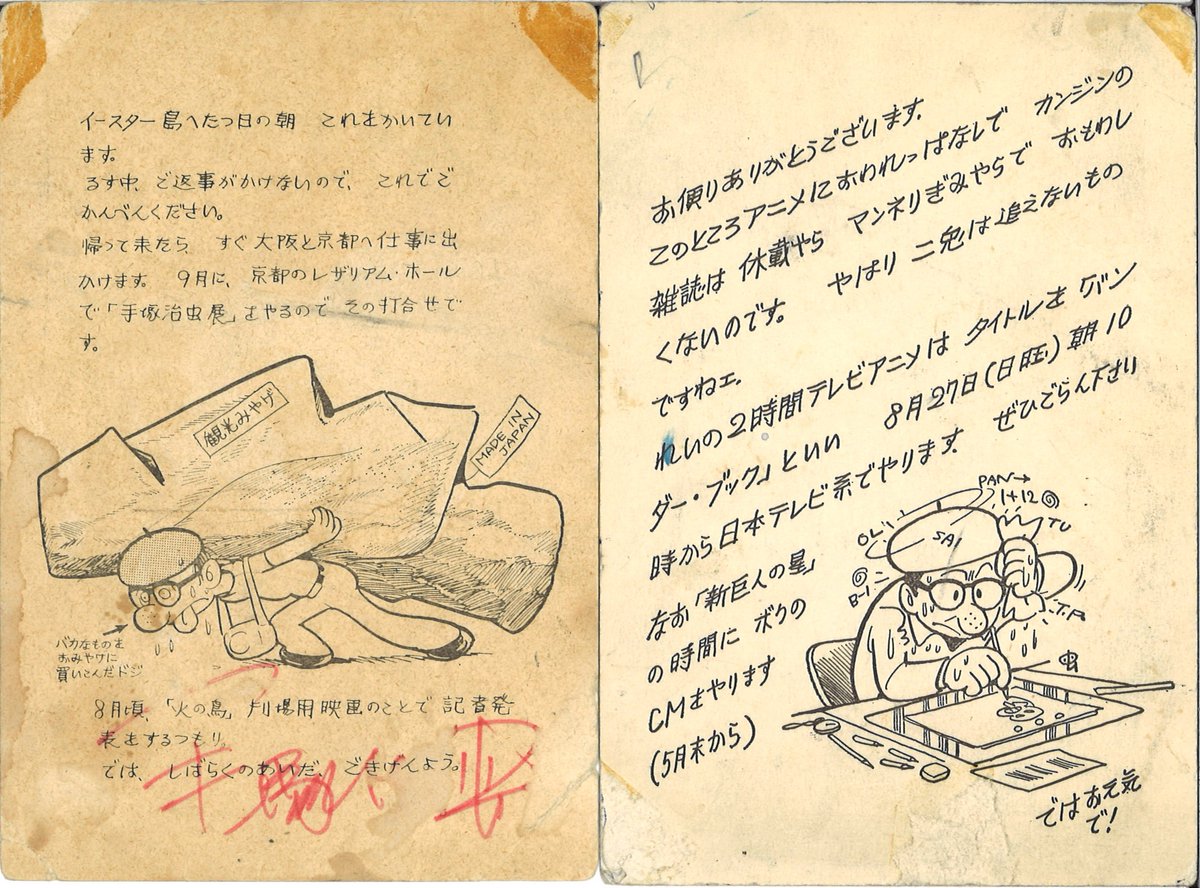 イースター島へたつ日の朝　これをかいてい
ます。
るす中、ご返事がかけないので、これでご
かんべんください。
帰って来たら、すぐ大阪と京都へ仕事に出
かけます。9月に、京都のレザリアム・ホール
で「手塚治虫展」をやるので その打合せで
す。
観光みやげ
MADE IN
JAPAN
バカなものを
おみやげに
買いこんだドジ
8月頃、「火の鳥」劇場用映画のことで 記者発
表をするつもり。
では、しばらくのあいだ、ごきげんよう。
お便りありがとうございます。
このところアニメにおわれっぱなしで カンジンの
雑誌は 休載やら マンネリぎみやらで おもわし
くないのです。やはり 二兎は追えないもの
ですねェ。
れいの2時間テレビアニメは タイトルを「バン
ダー・ブック」といい 8月27日(日旺)朝10
時から日本テレビ系でやります。ぜひごらん下さい
なお「新巨人の星」
の時間に ボクの
CMをやります
(5月末から)
PAN→
1+12
OL
SAI
TU
B-1
T.P.
ではお元気
で!